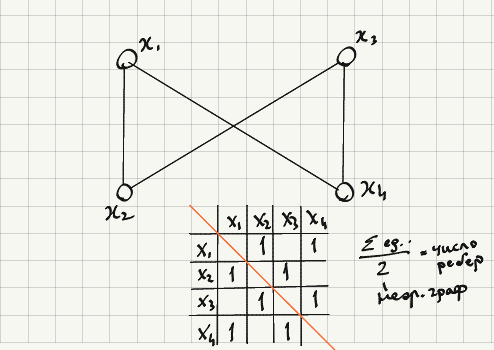 x₁ x₃
x₂ x₄
x₁ x₂ x₃ x₄
x₁ 1 1
x₂ 1 1
x₃ 1 1
x₄ 1 1
Σ ед. / 2 = число
ребер
неор. граф